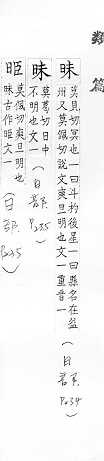 類篇
昧
莫貝切冥也一曰斗杓後星一曰縣名在益
州又莫佩切說文爽旦明也文一重音一
(日部 P234)
昩
莫葛切日中
不明也文一
(日部 P235)
莫佩切爽旦明也
昧古作文一
(日部 P235)